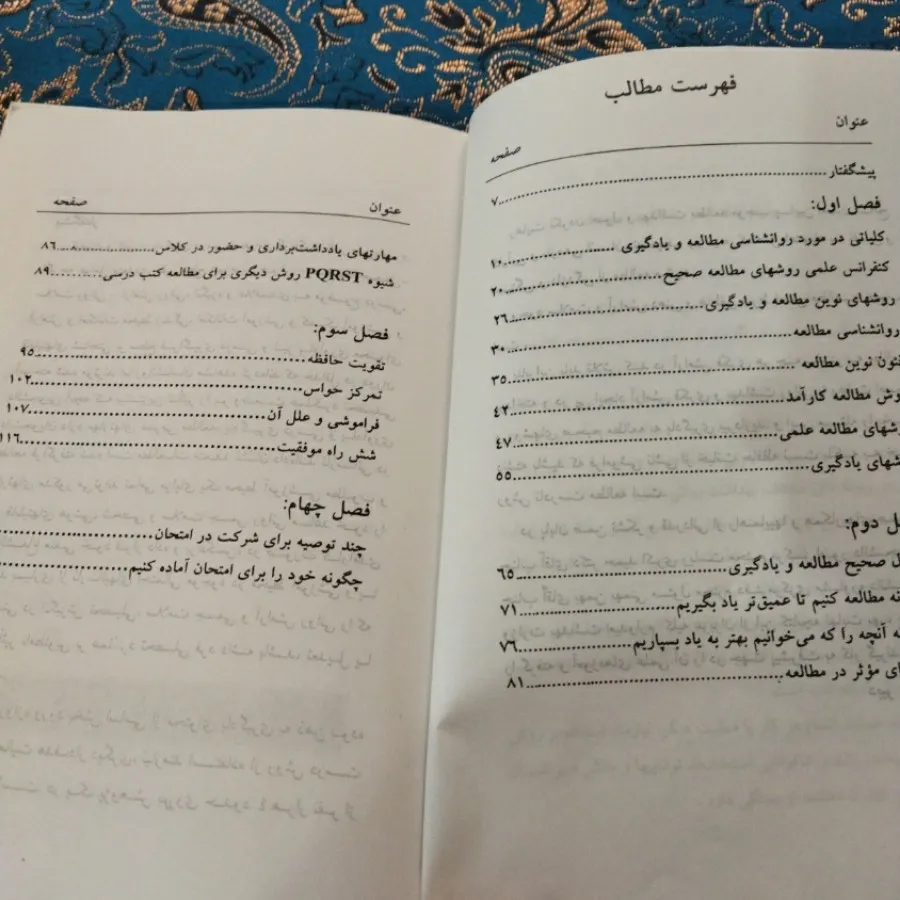 فهرست مطالب
عنوان صفحه
پیشگفتار ۷
فصل اول:
کلیاتی در مورد روانشناسی مطالعه و یادگیری ۱۰
کنفرانس علمی روشهای مطالعه صحیح ۲۰
روشهای نوین مطالعه و یادگیری ۲۶
روانشناسی مطالعه ۳۰
نوین مطالعه ۳۵
مطالعه کارآمد ۴۲
مطالعه علمی ۴۷
یادگیری ۵۵
دوم:
صحیح مطالعه و یادگیری ۶۵
مطالعه کنیم تا عمیق‌تر یاد بگیریم ۷۱
آنچه را که می‌خوانیم بهتر به یاد بسپاریم ۷۶
مؤثر در مطالعه ۸۱
عنوان صفحه
مهارتهای یادداشت‌برداری و حضور در کلاس ۸۶
شیوه PQRST روش دیگری برای مطالعه کتب درسی ۸۹
فصل سوم:
تقویت حافظه ۹۵
تمرکز حواس ۱۰۲
فراموشی و علل آن ۱۰۷
شش راه موفقیت ۱۱۶
فصل چهام:
چند توصیه برای شرکت در امتحان
چگونه خود را برای امتحان آماده کنیم